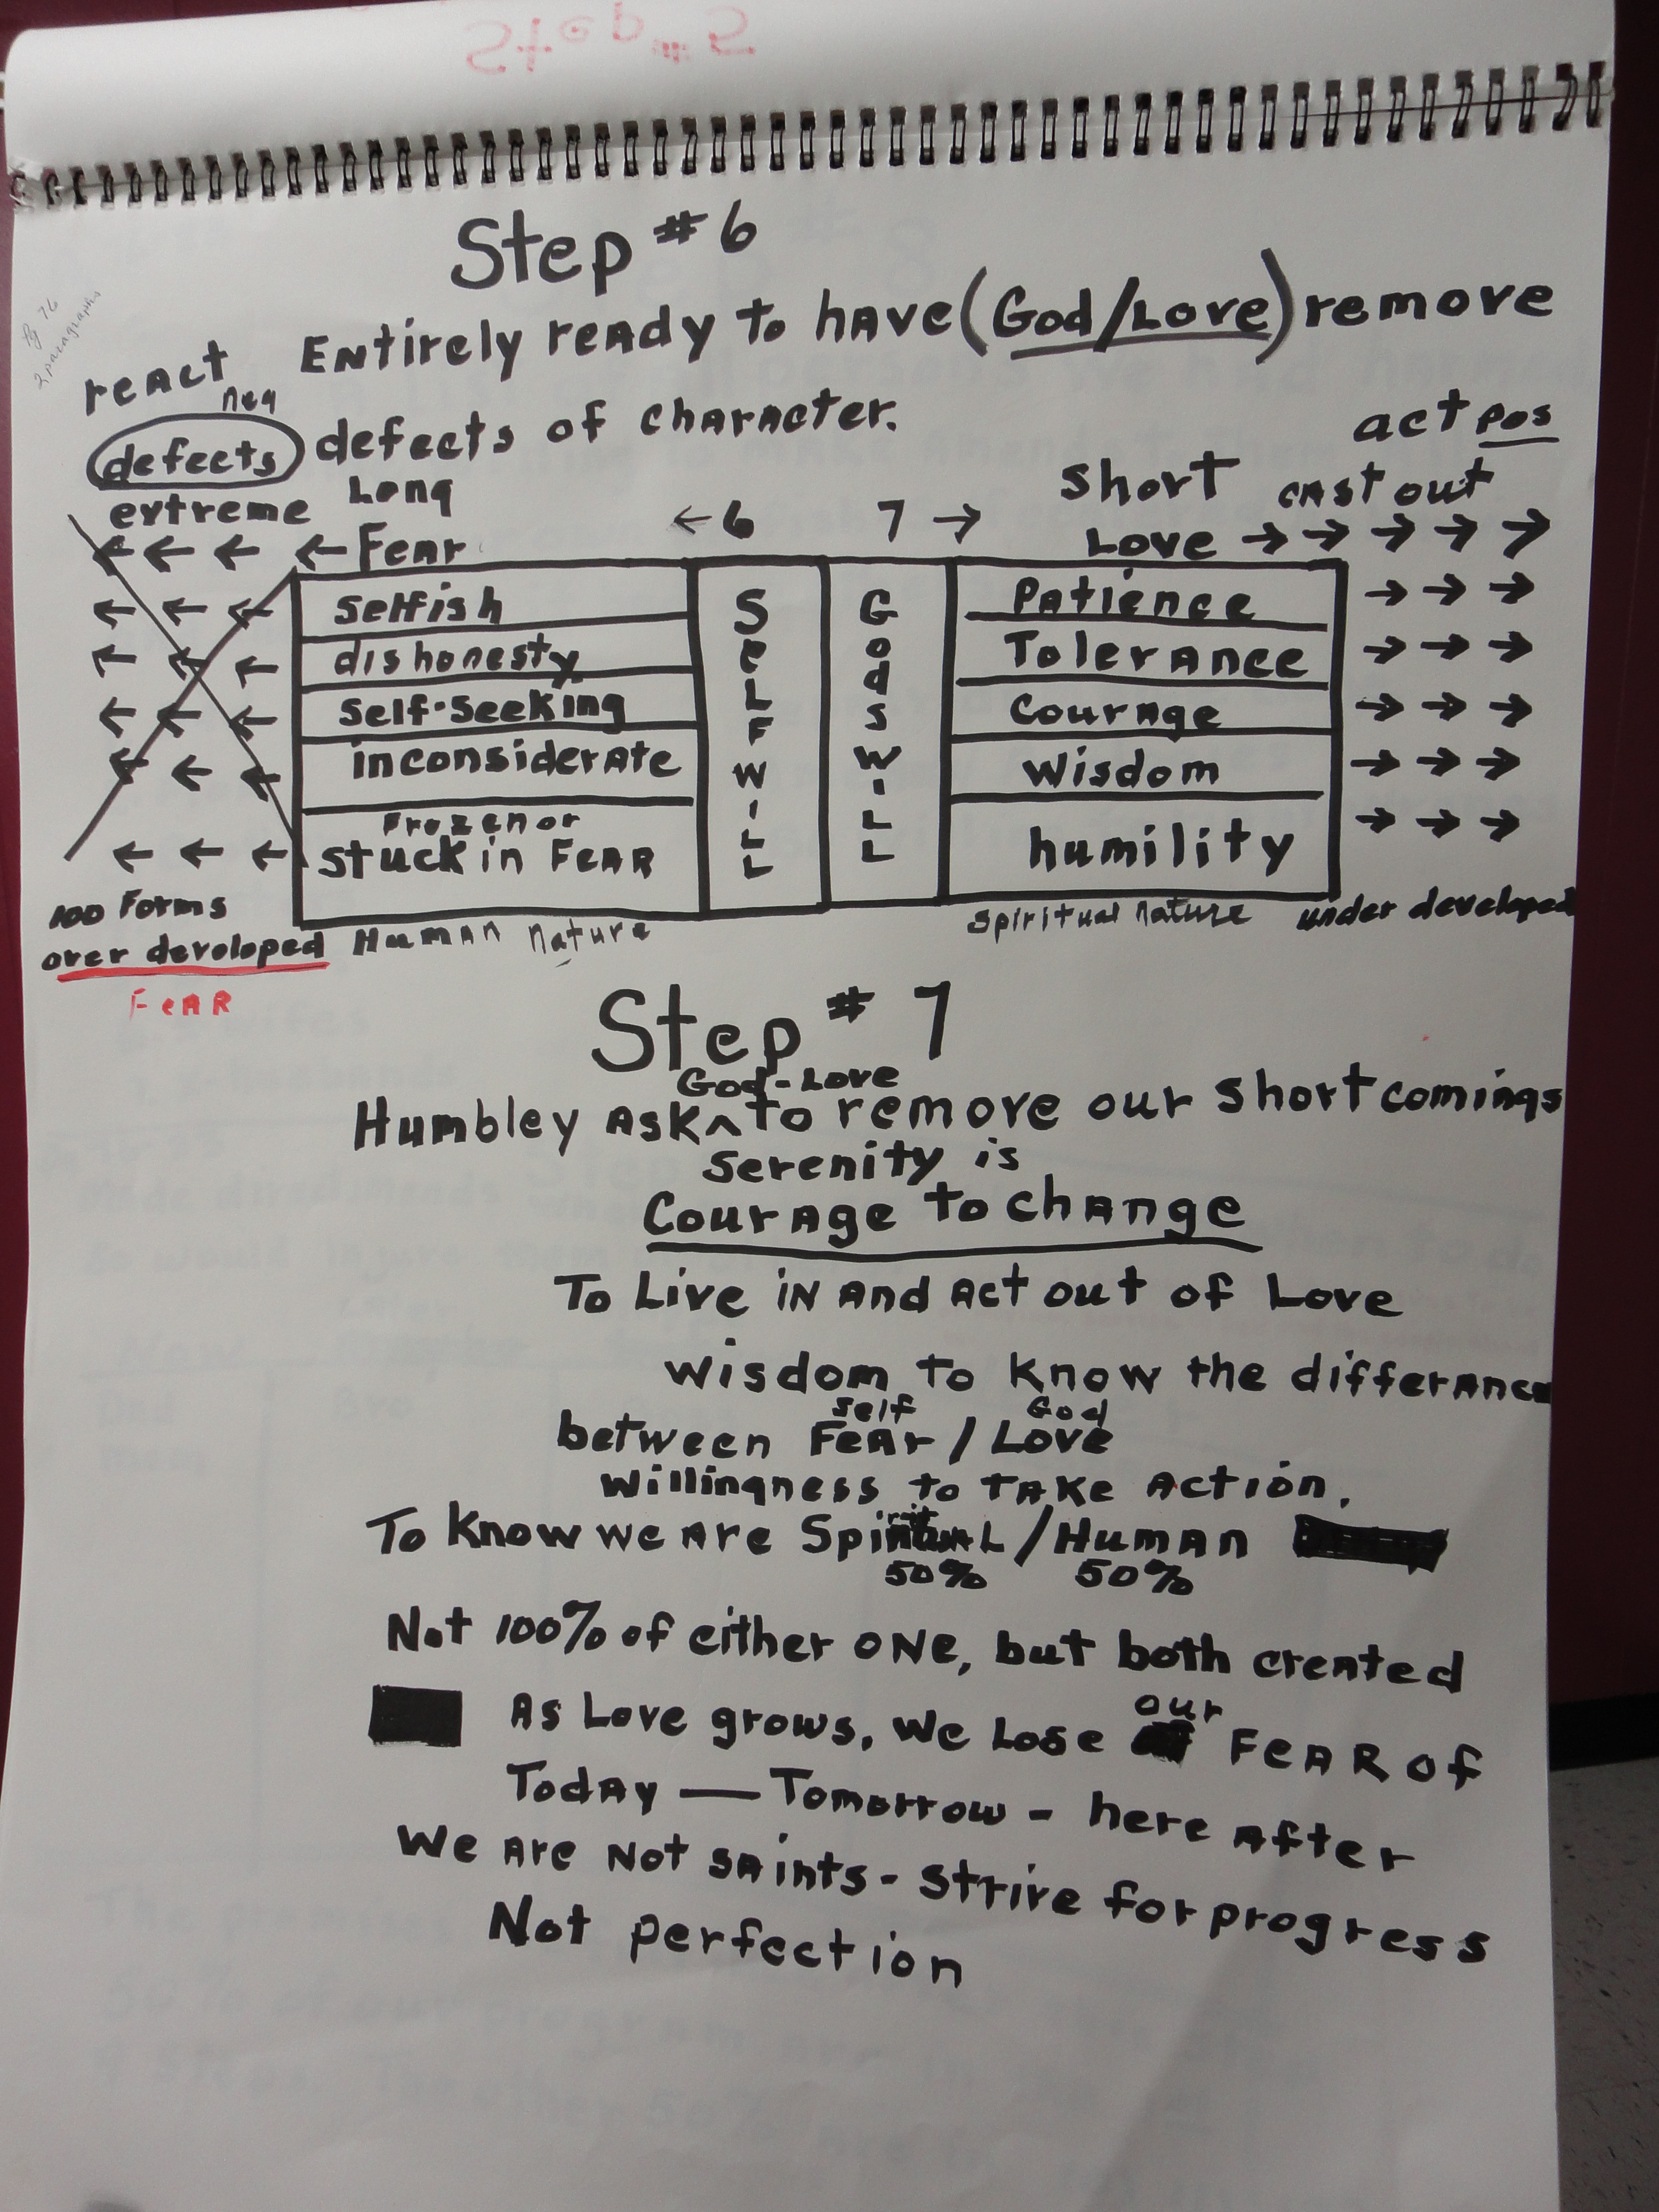 Step #5
Step #6
Pg 76
2 paragraphs
Entirely ready to have (God/Love) remove
react
neg
defects
defects of character.
act pos
extreme
Long
Short
cast out
Fear
←6
7→
Love
selfish
dishonesty
self-seeking
inconsiderate
Frozen or
stuck in Fear
Self Will
Gods Will
Patience
Tolerance
Courage
Wisdom
humility
100 Forms
over developed
Human Nature
Spiritual Nature
under developed
Fear
Step #7
God-Love
Humbley Ask ^ to remove our short comings
Serenity is
Courage to change
To Live in and act out of Love
wisdom to know the differance
self God
between Fear / Love
willingness to take action.
To know we are Spiritual / Human
50% 50%
Not 100% of either one, but both created
our
As Love grows, we Lose Fear of
Today — Tomorrow - here after
We are not saints - strive for progress
Not perfection